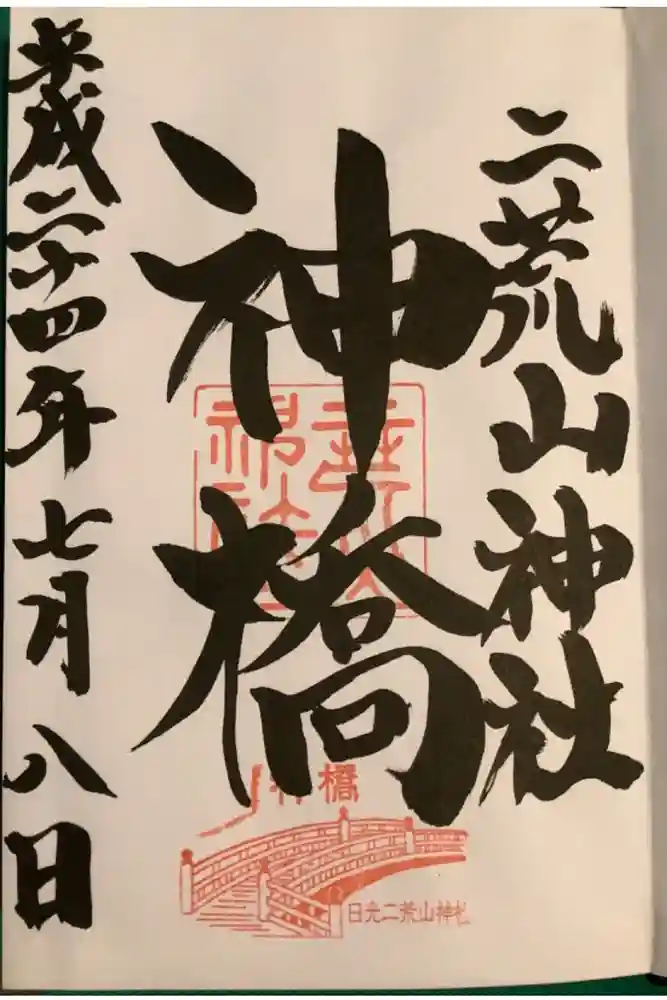 二荒山神社
神橋
平成二十四年七月八日
神橋
日光二荒山神社